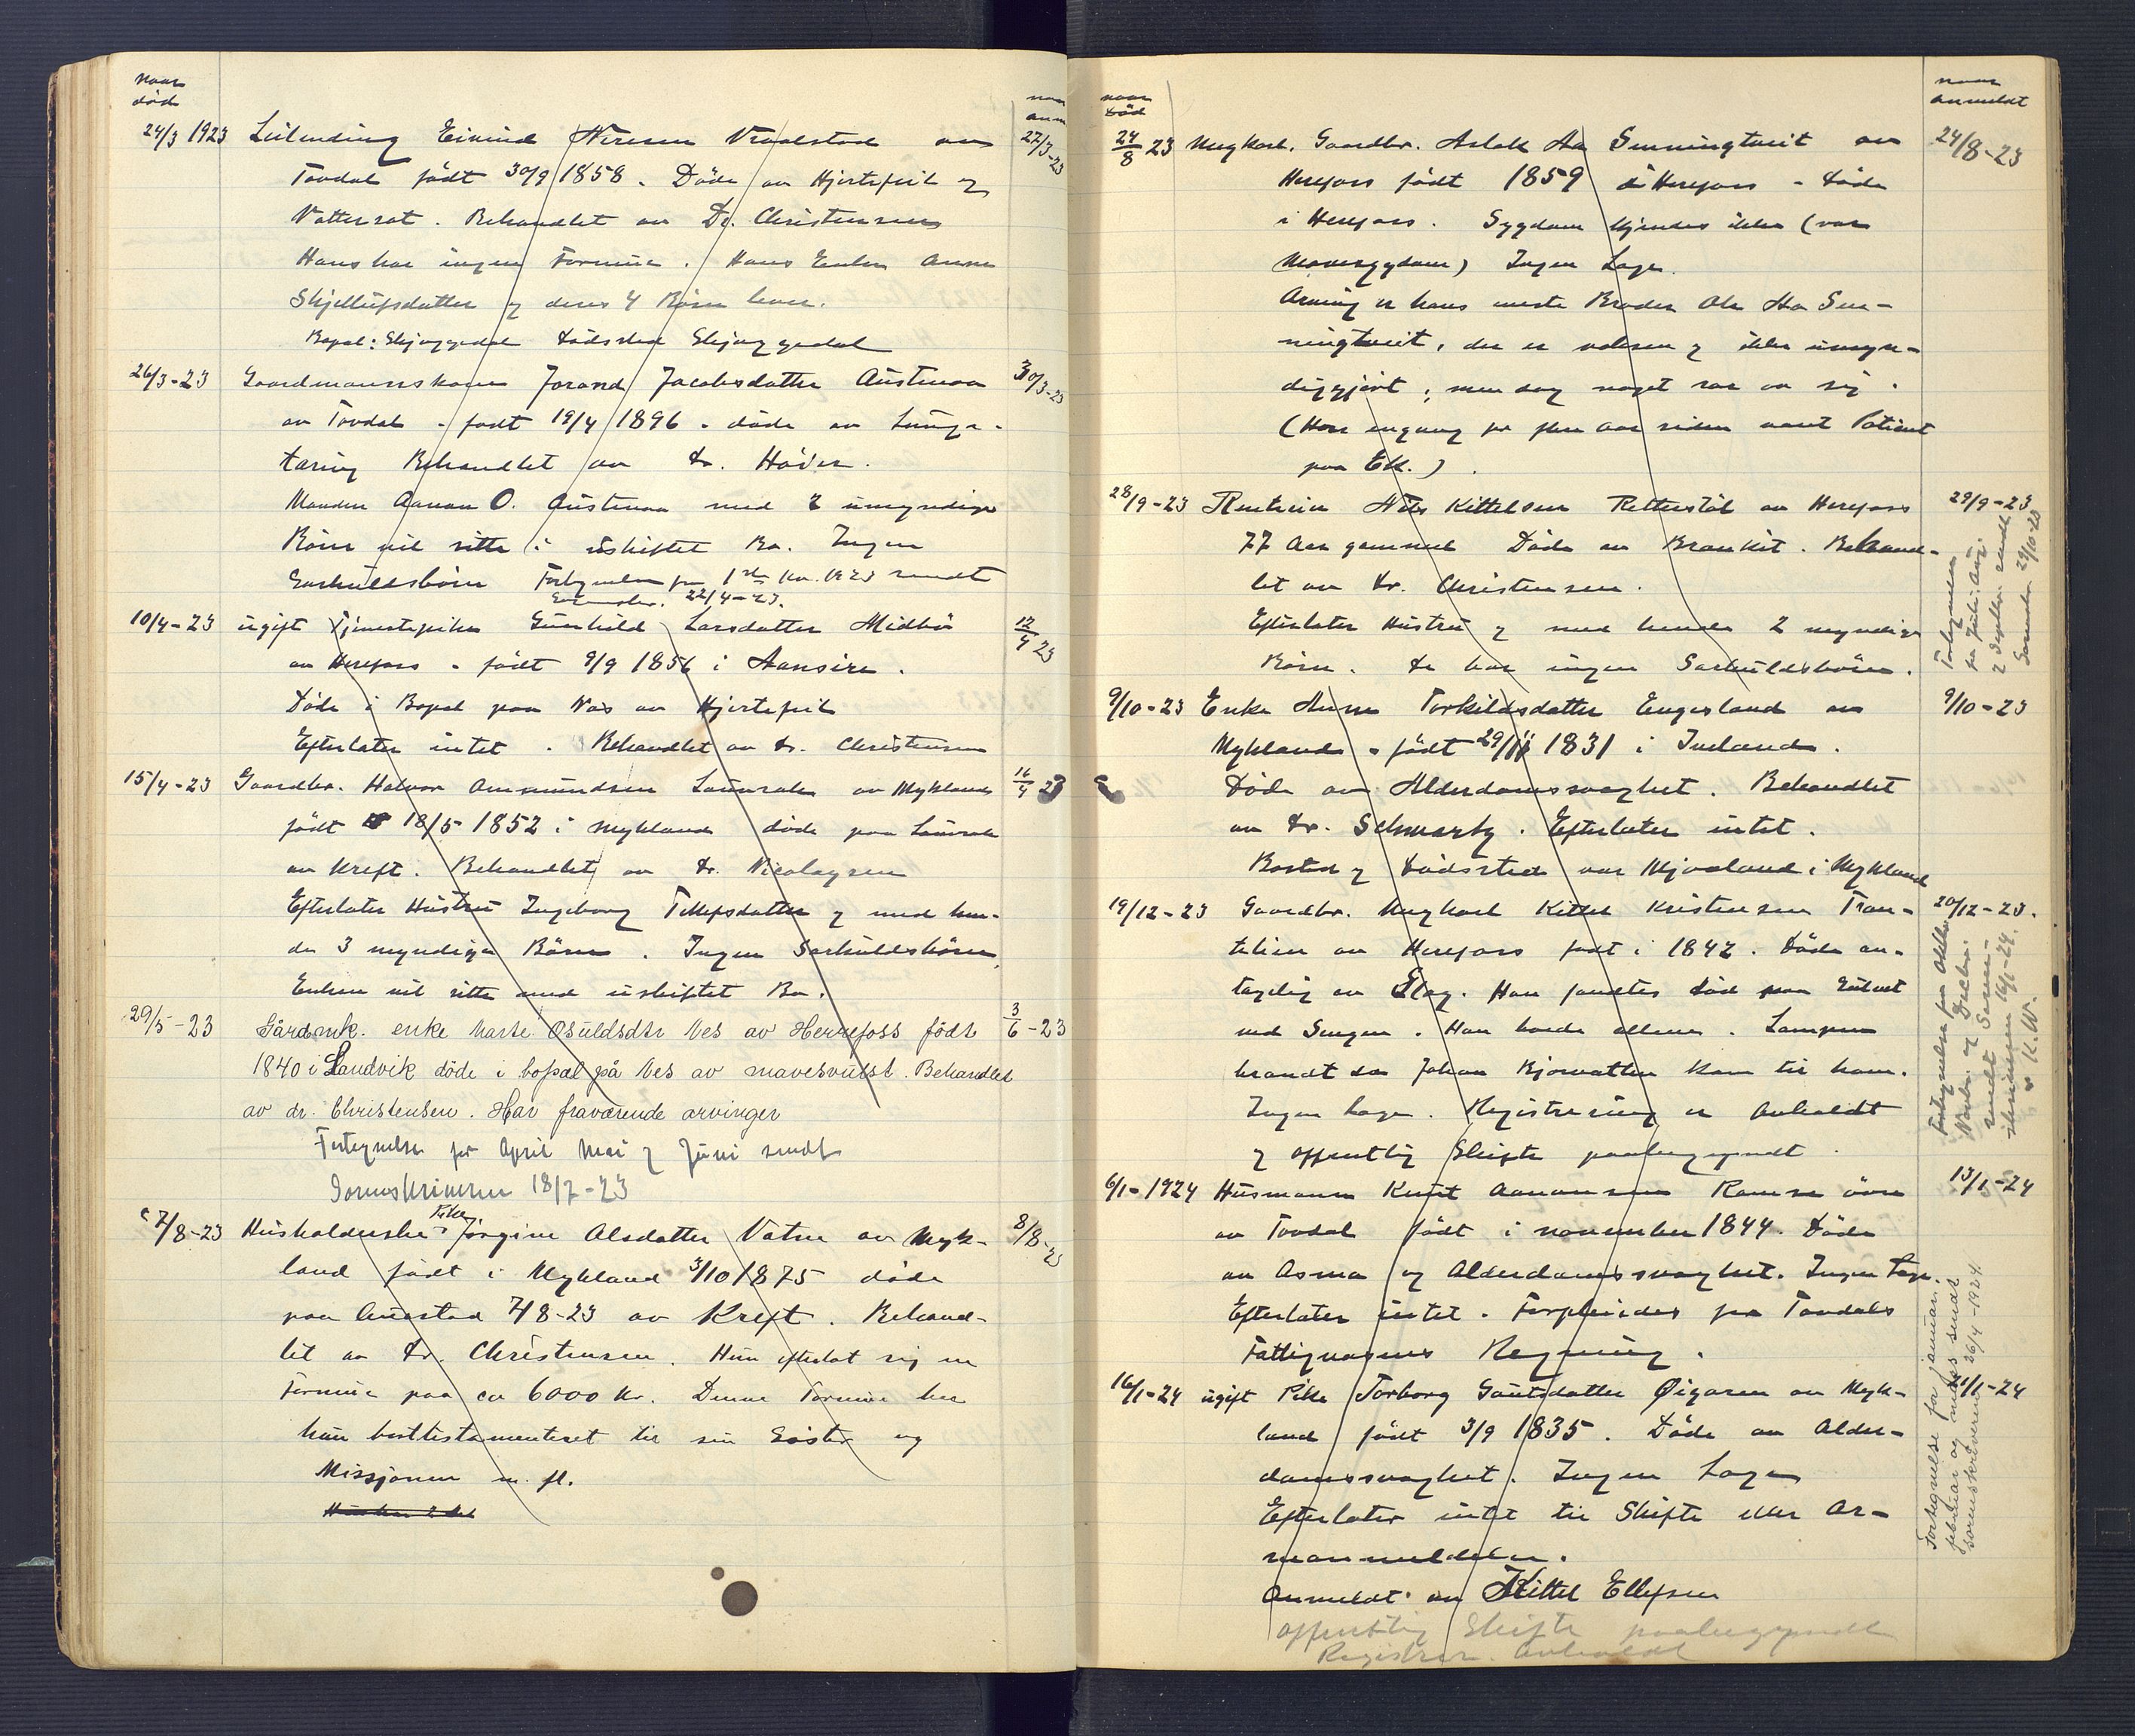 Naar
død
naar
anm
24/3 1923 Leilending Eivind Nirsen Vraalstad av 27/3-23
Tovdal født 30/9 1858. Døde av Hjertefeil og
Vattersot. Behandlet av Dr. Christensen
Hans har ingen Formue. Hans Enke Anne
Skjellufsdatter og deres 4 Børn lever.
Bopel: Skjeggedal Dødsted Skjeggedal
26/3-23 Gaardmannskone Jorand Jacobsdatter Austenaa 30/3-23
av Tovdal - født 19/4 1896 - døde av Lunge-
tæring Behandlet av Dr. Høver.
Manden Aanon O. Austenaa med 2 umyndige
Børn vil sitte i uskiftet Bo. Ingen
Særkuldsbørn Fortegnelse for 1ste Kv. 1923 sendt
Sorenskr. 22/4-23.
10/4-23 ugift Tjenestepike Gunhild Larsdatter Midbø 12/4 23
av Herefoss - født 9/9 1856 i Aansire.
Døde i Bopel paa Næs av Hjertefeil
Efterlater intet. Behandlet av Dr. Christensen
15/4-23 Gaardbr. Halvor Ammundsen Laurak av Mykland 16/4 23
født 18/5 1852 i Mykland døde paa Laurak
av Kreft. Behandlet av Dr. Nicolaysen
Efterlater Hustru Ingeborg Tellefsdatter og med hen-
de 3 myndige Børn. Ingen Særkuldsbørn,
Enken vil sitte med uskiftet Bo.
29/5-23 Gårdmk. enke Marte Osuldsdtr Ves av Herrefoss født 3/6-23
1840 i Landvik døde i bopæl på Ves av mavesvulst. Behandlet
av dr. Christensen. Har fraværende arvinger
Fortegnelse for April Mai og Juni sendt
Sorenskriveren 18/7-23
7/8-23 Husholderske Pike Jørgine Olsdatter Vatne av Myk- 8/8-23
land født i Mykland 3/10 1875 døde
paa Austad 7/8-23 av Kreft. Behand-
let av Dr. Christensen. Hun efterlot sig en
Formue paa ca 6000 Kr. Denne Formue har
hun borttestamenteret til sin Søster og
Missjonen m. fl.
naar
død
naar
anmeldt
24/8 23 Ungkarl. Gaardbr. Aslak Aa Senningtveit av 24/8-23
Herefoss født 1859 i Herefoss - Døde
i Herefoss. Sygdom kjendes ikke (var
Mavesygdom) Ingen Læge.
Arving er hans eneste Broder Ole Aa Sen-
ningtveit, der er voksen og ikke umyn-
diggjort; men dog noget rar av sig.
(Har engang for flere Aar siden været Patient
paa Eik.)
28/9-23 Rentenier Nils Kittelsen Retterstøl av Herefoss 29/9-23
77 Aar gammel Døde av Bronkit. Behand-
let av Dr. Christensen.
Efterlater Hustru og med hende 2 myndige
Børn. De har ingen Særkuldsbørn.
Fortegnelsen
for Juli. Aug.
og September sendt
Sorenskr. 29/10-23
9/10-23 Enke Anne Torkildsdatter Engesland av 9/10-23
Mykland - født 29/11 1831 i Iveland.
Døde av Alderdomssvaghet. Behandlet
av Dr. Schwartz. Efterlater intet.
Bosted og Dødsted var Mjvaland i Mykland
19/12-23 Gaardbr. Ungkarl Kittel Kristensen Tran- 20/12-23.
telien av Herefoss født i 1842. Døde an-
tagelig av Slag. Han fandtes død paa Gulvet
ved Sengen. Han boede allene. Lampen
brændt da Johan Bjorvatten kom til ham.
Ingen Læge. Registrering er avholdt
og offentlig Skifte paabegyndt.
Fortegnelse for Oktbr
Novbr. og Decbr.
sendt Soren-
skriveren 16/1-24.
K. W.
6/1-1924 Husmann Knut Aanonsen Ramse øvre 13/1-24
av Tovdal født i november 1844. Døde
av Asma og Alderdomssvaghet. Ingen Læge.
Efterlater intet. Forpleiedes for Tovdals
Fattigvæsens Regning.
16/1-24 ugift Pike Torborg Gautsdatter Øigaren av Myk- /1-24
land født 3/9 1835. Døde av Alder-
domssvaghet. Ingen Læge
Efterlater intet til Skifte eller Ar-
Anmeldt av Kittel Ellefsen
offentlig Skifte paabegyndt
Registrer. avholdt
Fortegnelse for januar.
februar og mars sendt
sorenskriveren 26/4-1924.